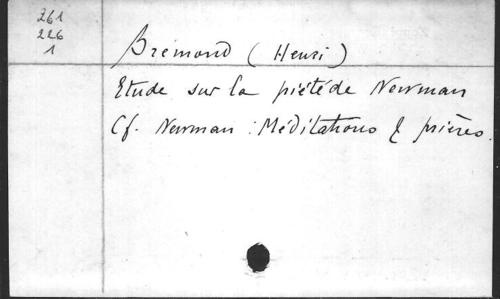 261
226
1
Bremond (Henri)
Etude sur la piété de Newman
Cf. Newman : Méditations & prières.